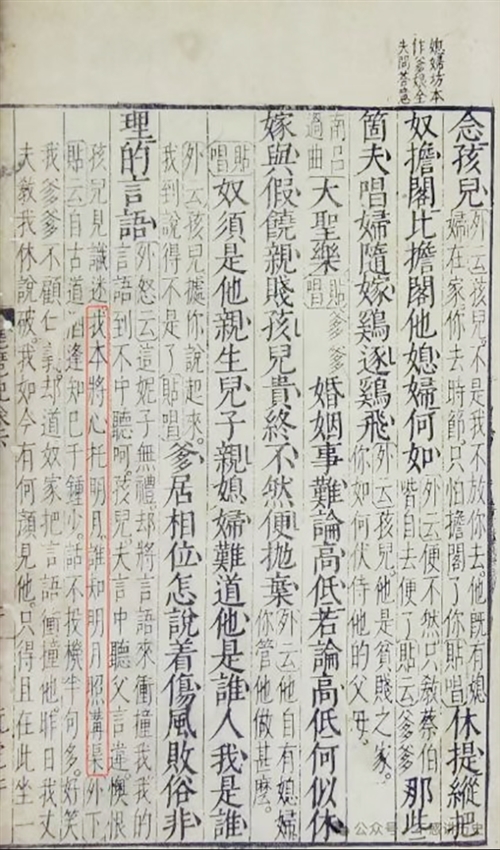 媳婦坊本
作爹娘全
失問荅意
念孩兒
外云不是我不放你去。他既有媳
婦在家你去時節只怕擔閣了你貼唱
休提縱把
奴擔閣比擔閣他媳婦何如
外云便不然只敎蔡伯
喈自去便了貼云爹爹
那些
箇夫唱婦隨嫁鷄逐鷄飛
外云孩兒他是貧賤之家。
你如何伏侍他的父母。
南呂
過曲
大聖樂
貼唱
爹爹
婚姻事難論高低若論高低何似休
嫁與假饒親賤孩兒貴終不然便拋棄
外云他自有媳婦
你管他做甚麼。
貼唱
奴須是他親生兒子親媳婦難道他是誰人我是誰
外云孩兒據你說起來。
我到說得不是了貼唱
爹居相位怎說着傷風敗俗非
理的言語
外怒云這妮子無禮却將言語來衝撞我我的
言語到不中聽呵。孩兒。夫言中聽父言違。懊恨
孩兒見識迷我本將心托明月。誰知明月照溝渠外下
貼云自古道酒逢知已千鍾少。話不投機半句多。好笑
我爹爹不顧仁義。却道奴家把言語衝撞他。昨日我丈
夫敎我休說破。我如今有何顏見他。只得且在此坐一
公众号
讲历史